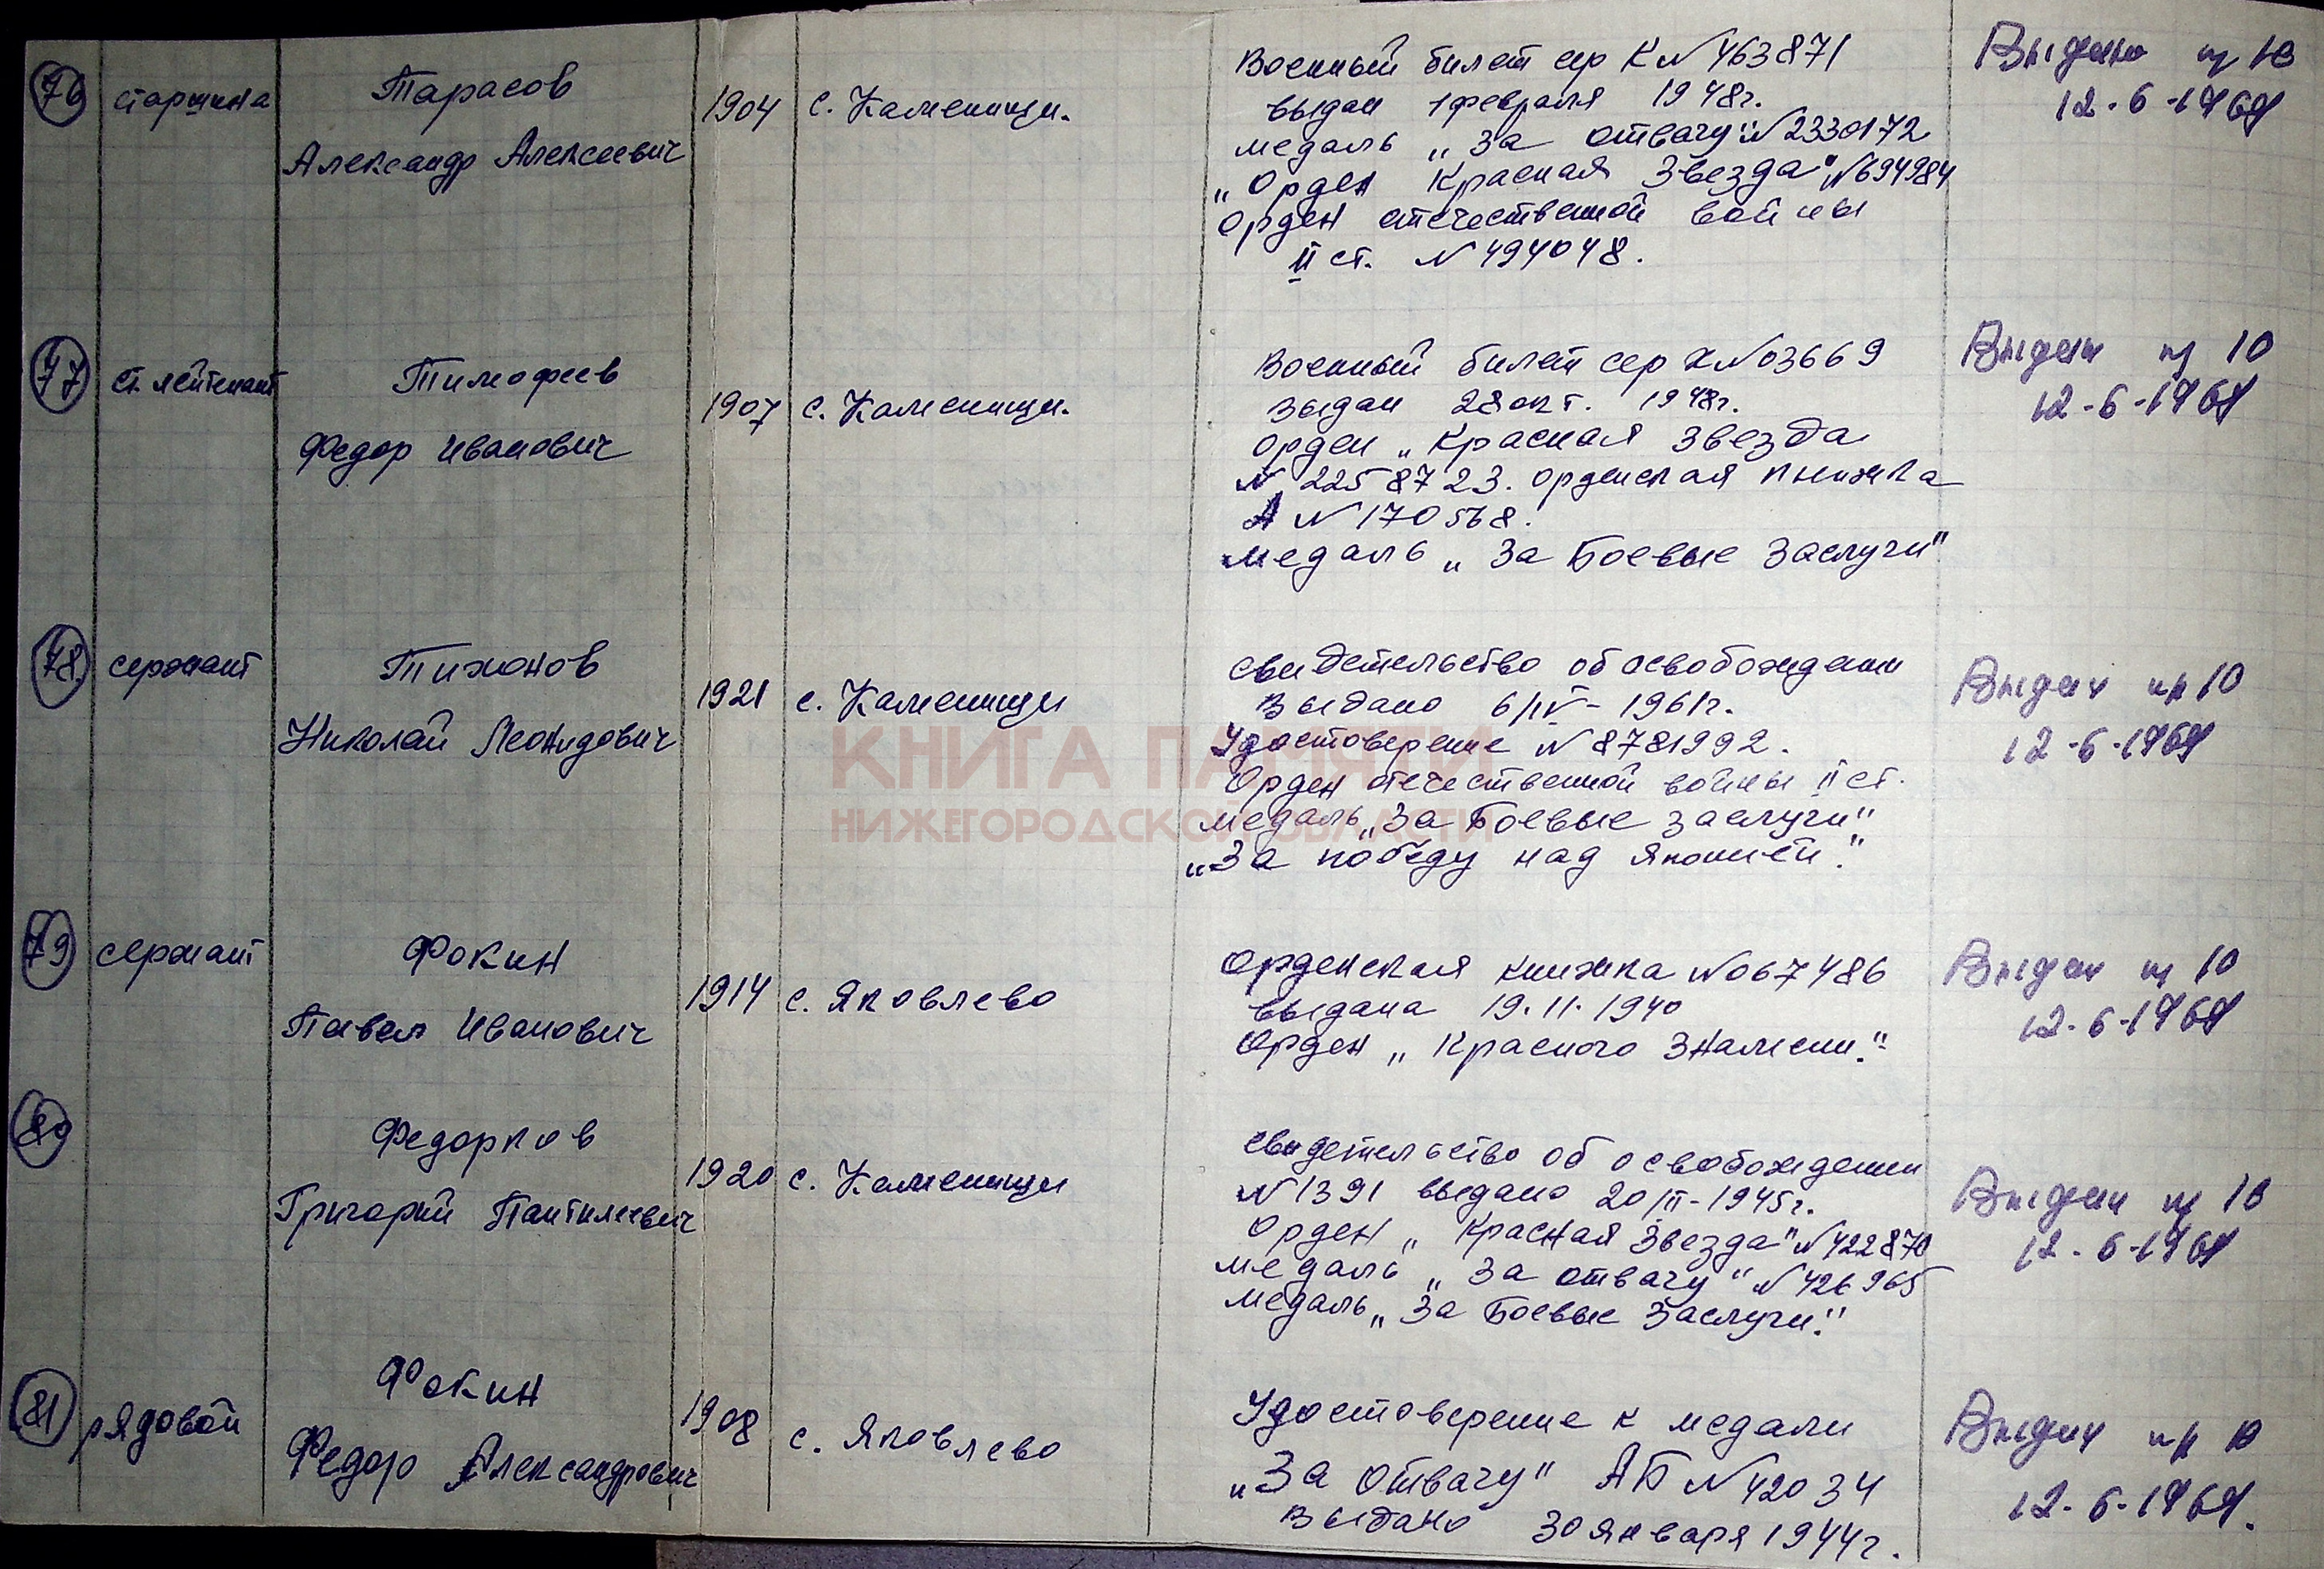 76 старшина Тарасов
Александр Алексеевич
1904 с. Каменищи.
Военный билет сер К№ 463871
выдан 1 февраля 1948г.
медаль „За отвагу" №2330172
„Орден Красная Звезда" №694984
Орден отечественной войны
II ст. № 494048.
12-6-1969
77 ст. лейтенант Тимофеев
Федор Иванович
1907 с. Каменищи.
Военный билет сер №03669
Выдан 28 окт. 1948г.
орден „Красная Звезда
№ 2258723. орденская книжка
А №170568.
медаль „За Боевые Заслуги"
Выдан 10
12-6-1969
78 сержант Тихонов
Николай Леонидович
1921 с. Каменищи
Свидетельство об освобождении
Выдано 6/IV-1961г.
Удостоверение №8781992.
Орден отечественной войны II ст.
медаль „За Боевые заслуги"
„За победу над Японией."
Выдан 10
12-6-1969
КНИГА ПАМЯТИ
НИЖЕГОРОДСКОЙ ОБЛАСТИ
79 сержант Фокин
Павел Иванович
1914 с. Яковлево
Орденская книжка №067486
выдана 19.11.1940
Орден „Красного Знамени."
Выдан 10
12-6-1969
80 Федорков
Григорий Пантилеевич
1920 с. Каменищи
Свидетельство об освобождении
№1391 выдано 20/III-1945г.
Орден „Красная Звезда" №422870
медаль „За отвагу" №426965
медаль „За Боевые Заслуги."
Выдан 10
12-6-1969
81 рядовой Фокин
Федор Александрович
1908 с. Яковлево
Удостоверение к медали
„За Отвагу" АБ №42034
Выдано 30 января 1944г.
Выдан 10
12-6-1969.